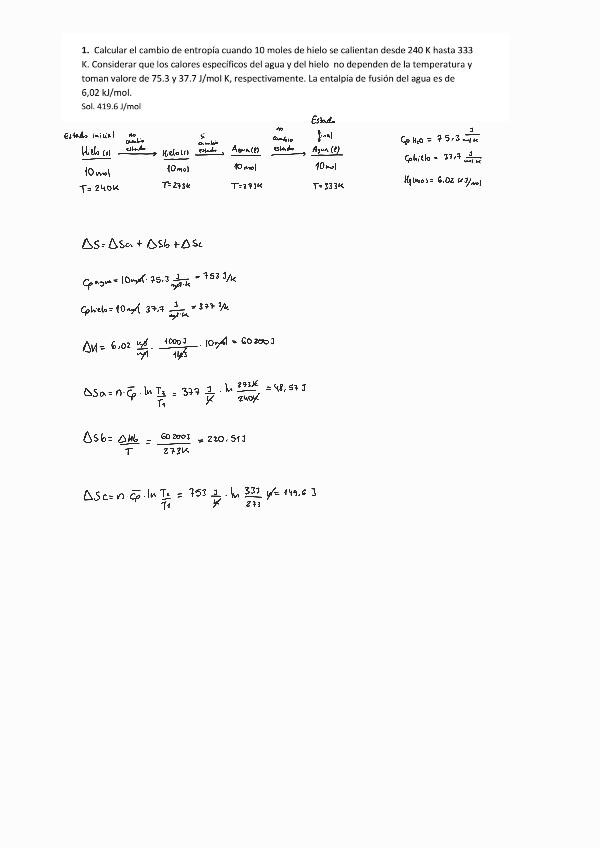 1. Calcular el cambio de entropía cuando 10 moles de hielo se calientan desde 240 K hasta 333
K. Considerar que los calores específicos del agua y del hielo no dependen de la temperatura y
toman valore de 75.3 y 37.7 J/mol K, respectivamente. La entalpia de fusión del agua es de
6,02 kJ/mol.
Sol. 419.6 J/mol
Estado inicial no cambio estado si cambio estado no cambio estado Estado final
Hielo (s) → Hielo (s) → Agua (l) → Agua (l)
10 mol 10 mol 10 mol 10 mol
T = 240K T = 273K T = 273K T = 333K
Cp H2O = 75.3 J/mol K
Cp hielo = 37,7 J/mol K
= 6.02 KJ/mol
ΔS = ΔSa + ΔSb + ΔSc
Cp agua = 10 mol · 75.3 J/mol·K = 753 J/K
Cp hielo = 10 mol 37,7 J/mol·K = 377 J/K
ΔH = 6,02 KJ/mol · 1000J/1KJ · 10 mol = 60200J
ΔSa = n · Cp · ln T2/T1 = 377 J/K · ln 273K/240K = 48,57 J
ΔSb = ΔHb/T = 60200J/273K = 220.51J
ΔSc = n Cp · ln T2/T1 = 753 J/K · ln 333/273 K = 149.6 J